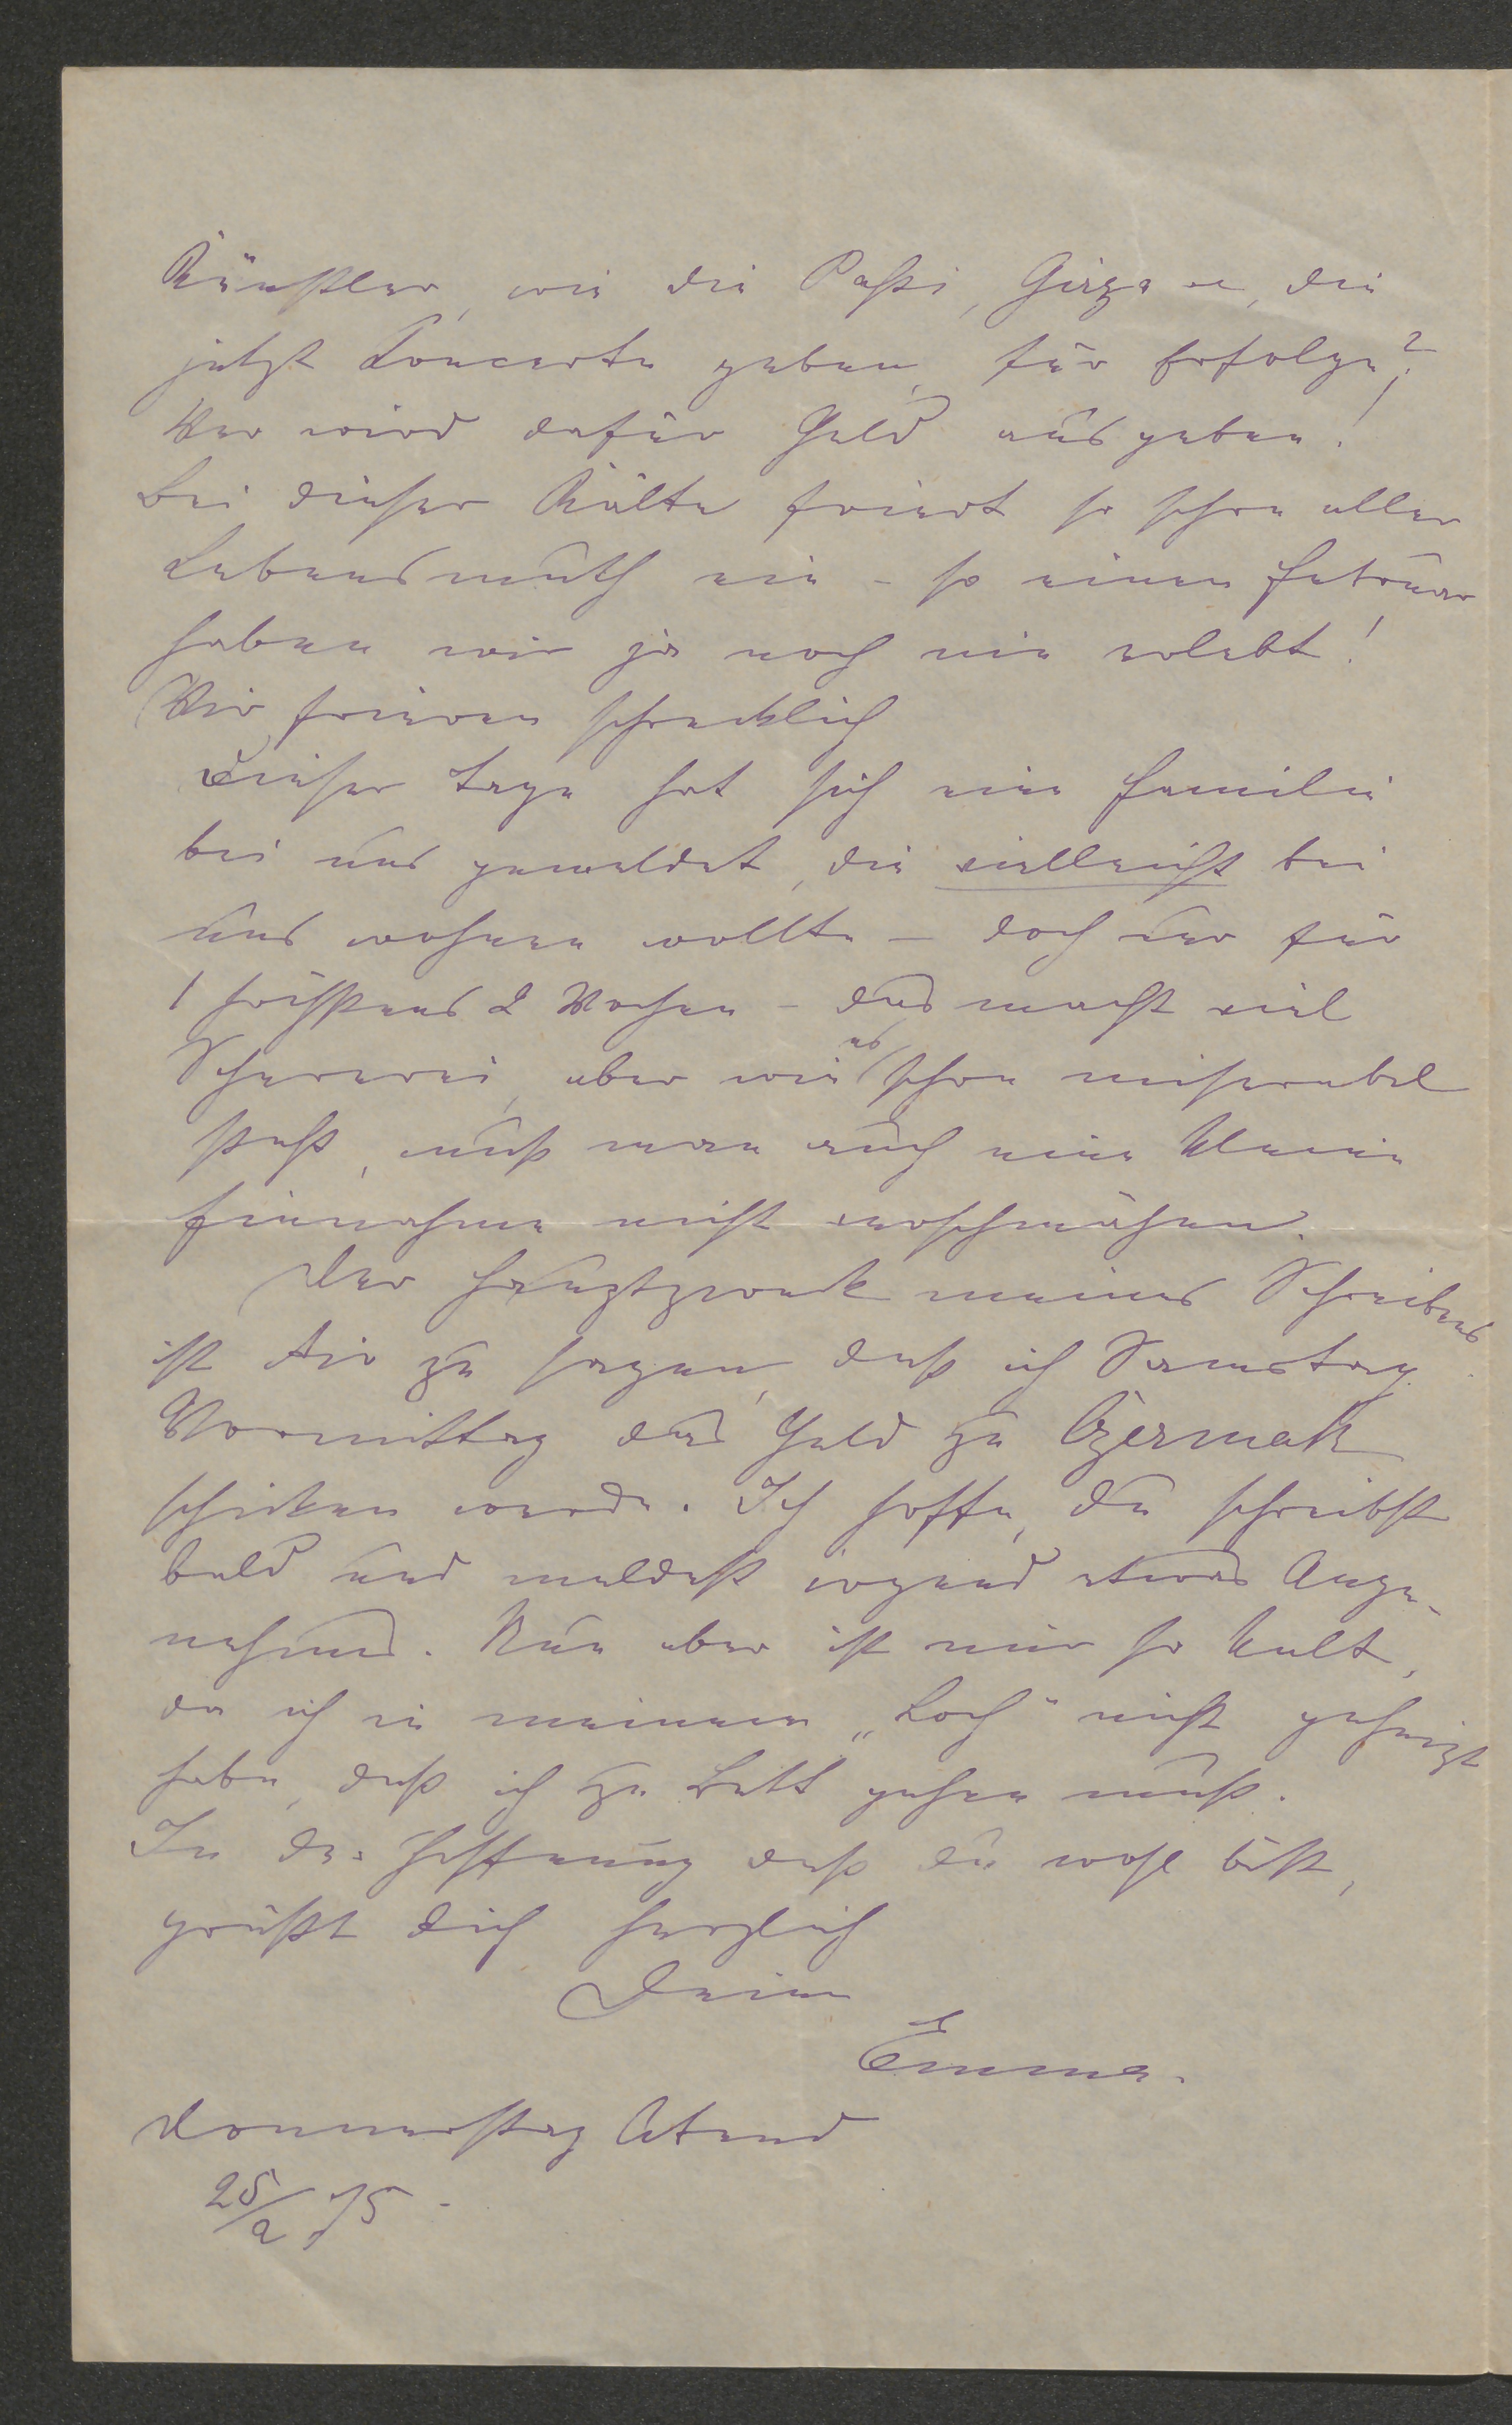 Künstler, wie die Patti, Girza etc, die
jetzt Concerte geben, für Erfolge?
Wer wird dafür Geld ausgeben!
Bei dieser Kälte friert so schon aller
Lebensmuth ein – so einen Februar
haben wir ja noch nie erlebt!
Wir frieren schrecklich
Dieser Tage hat sich eine Familie
bei uns gemeldet, die vielleicht bei
uns wohnen wollte – doch nur für
1 höchstens 2 Wochen – das macht viel
Schererei, aber wie es schon miserabel
steht, muß man auch eine kleine
Einnahme nicht verschmähen.
Der Hauptzweck meines Schreibens
ist Dir zu sagen, daß ich Samstag
Vormittag das Geld zu Czermak
schicken werde. Ich hoffe, du schreibst
bald und meldest irgend etwas Ange-
nehmes. Nun aber ist mir so kalt,
da ich in meinem „Loch" nicht geheizt
habe, daß ich zu Bett gehen muß.
In der Hoffnung daß du wohl bist,
grüßt dich herzlich
Deine
Emma.
Donnerstag Abend
25/2 75.